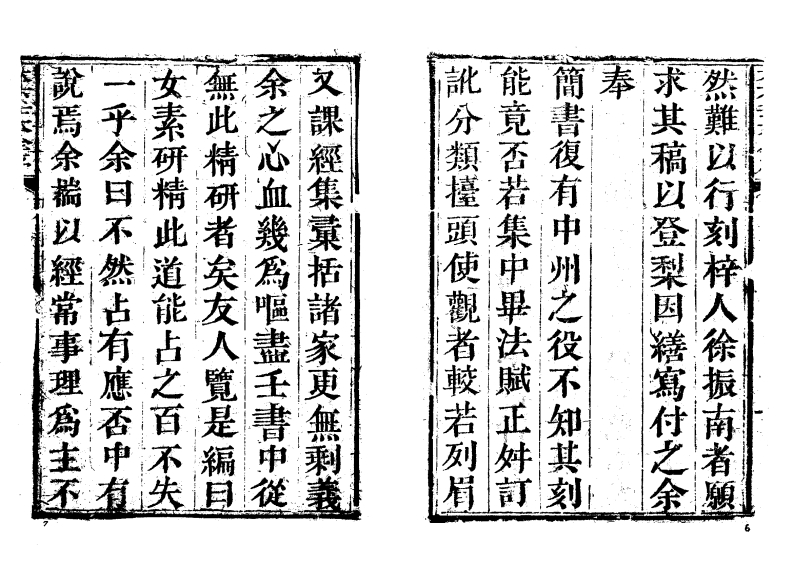 然難以行刻梓人徐振南者願
求其稿以登梨因繕寫付之余
奉
簡書復有中州之役不知其刻
能竟否若集中畢法賦正舛訂
訛分類擡頭使觀者較若列眉
6
又課經集彙括諸家更無剩義
余之心血幾為嘔盡壬書中從
無此精研者矣友人覽是編曰
女素研精此道能占之百不失
一乎余曰不然占有應否中有
說焉余耑以經常事理為主不
7